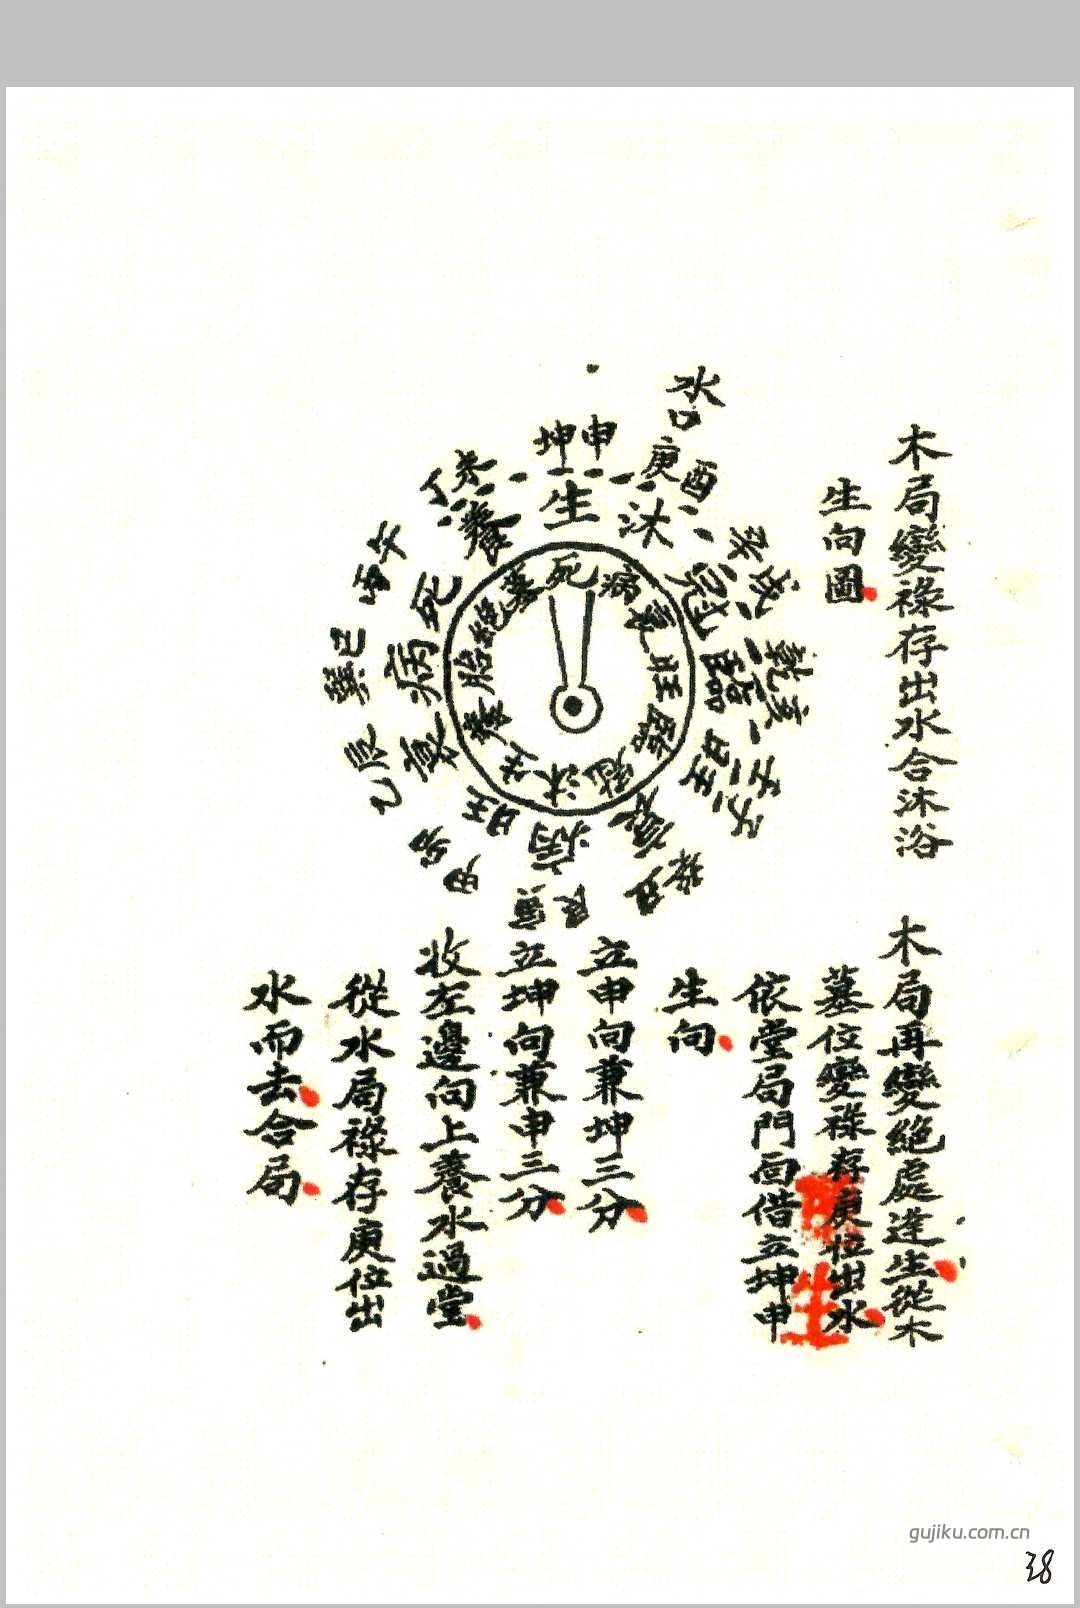 木局變祿存出水合沐浴
生向圖
木局再變絕處逢生從木
墓位變祿存庚位出水
依堂局門面借立坤申
生向
立申向兼坤三分
立坤向兼申三分
收左邊向上養水過堂
從水局祿存庚位出
水而去合局
水口
坤申
庚酉
辛戌
乾亥
壬子
癸丑
艮寅
甲卯
乙辰
巽巳
丙午
丁未
生
沐
冠
臨
旺
衰
病
旺
衰
病
死
養
死
病
衰
旺
臨
冠
沐
生
養
胎
絕
墓
gujiku.com.cn
38